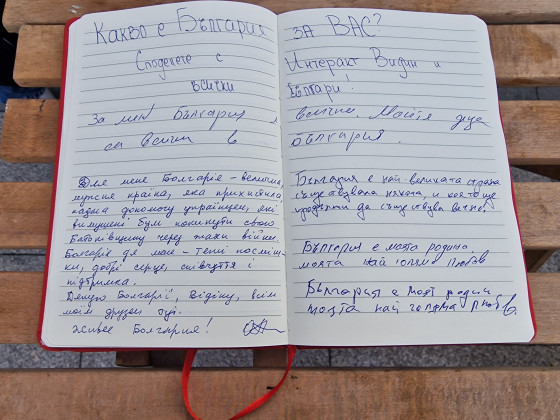 Какво е България
Споделете с
всички
За мен България
са всички в
Для мене Болгарія - велична,
мужня країна, яка прихистила,
надна допомогу українцям, які
вимушені були покинути свою
Батьківщину через жахи війни.
Болгарія для мене - теплі посміш-
ки, добрі серця, співчуття і
підтримка.
Дякую Болгарії, Відіну, всім
моїм друзям тут.
Живее Болгария!
ЗА ВАС?
Интеракт Видин и
българи!
всичко. Моята душа
България.
България е най великата страна
съществувала някога, и която ще
продължи да съществува вечно.
България е моята родина
моята най голяма любов
България е моят родин
моята най голяма любов.